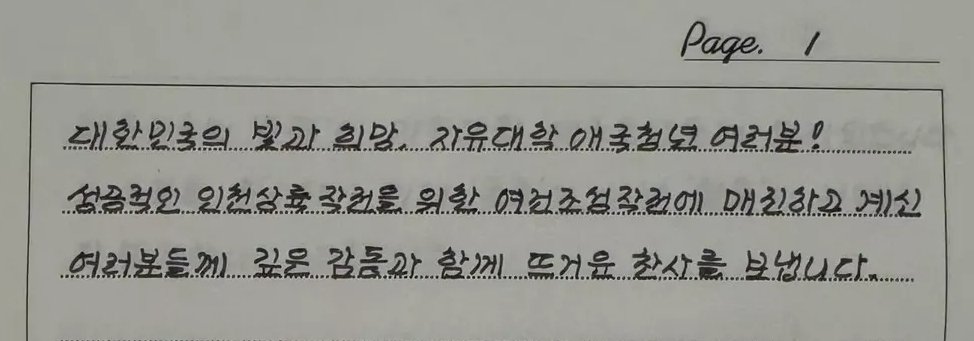 Page. 1
대한민국의 빛과 희망, 자유대학 애국청년 여러분!
성공적인 인천상륙작전을 위한 여건조성작전에 매진하고 계신
여러분들께 깊은 감동과 함께 뜨거운 찬사를 보냅니다.